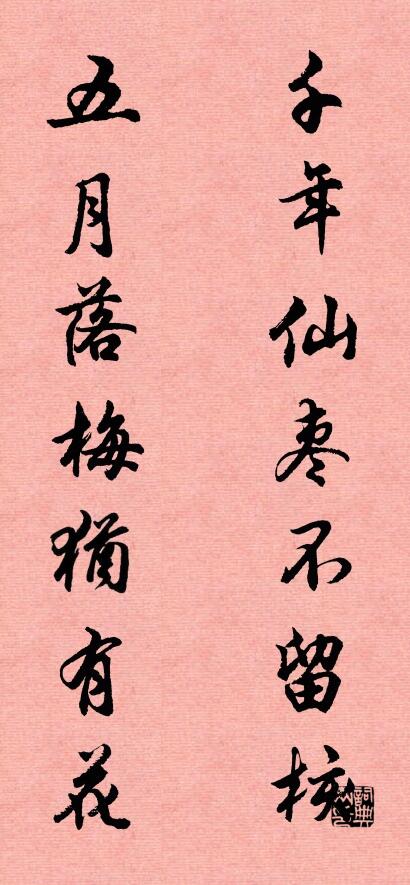 千年仙枣不留核
五月落梅猶有花